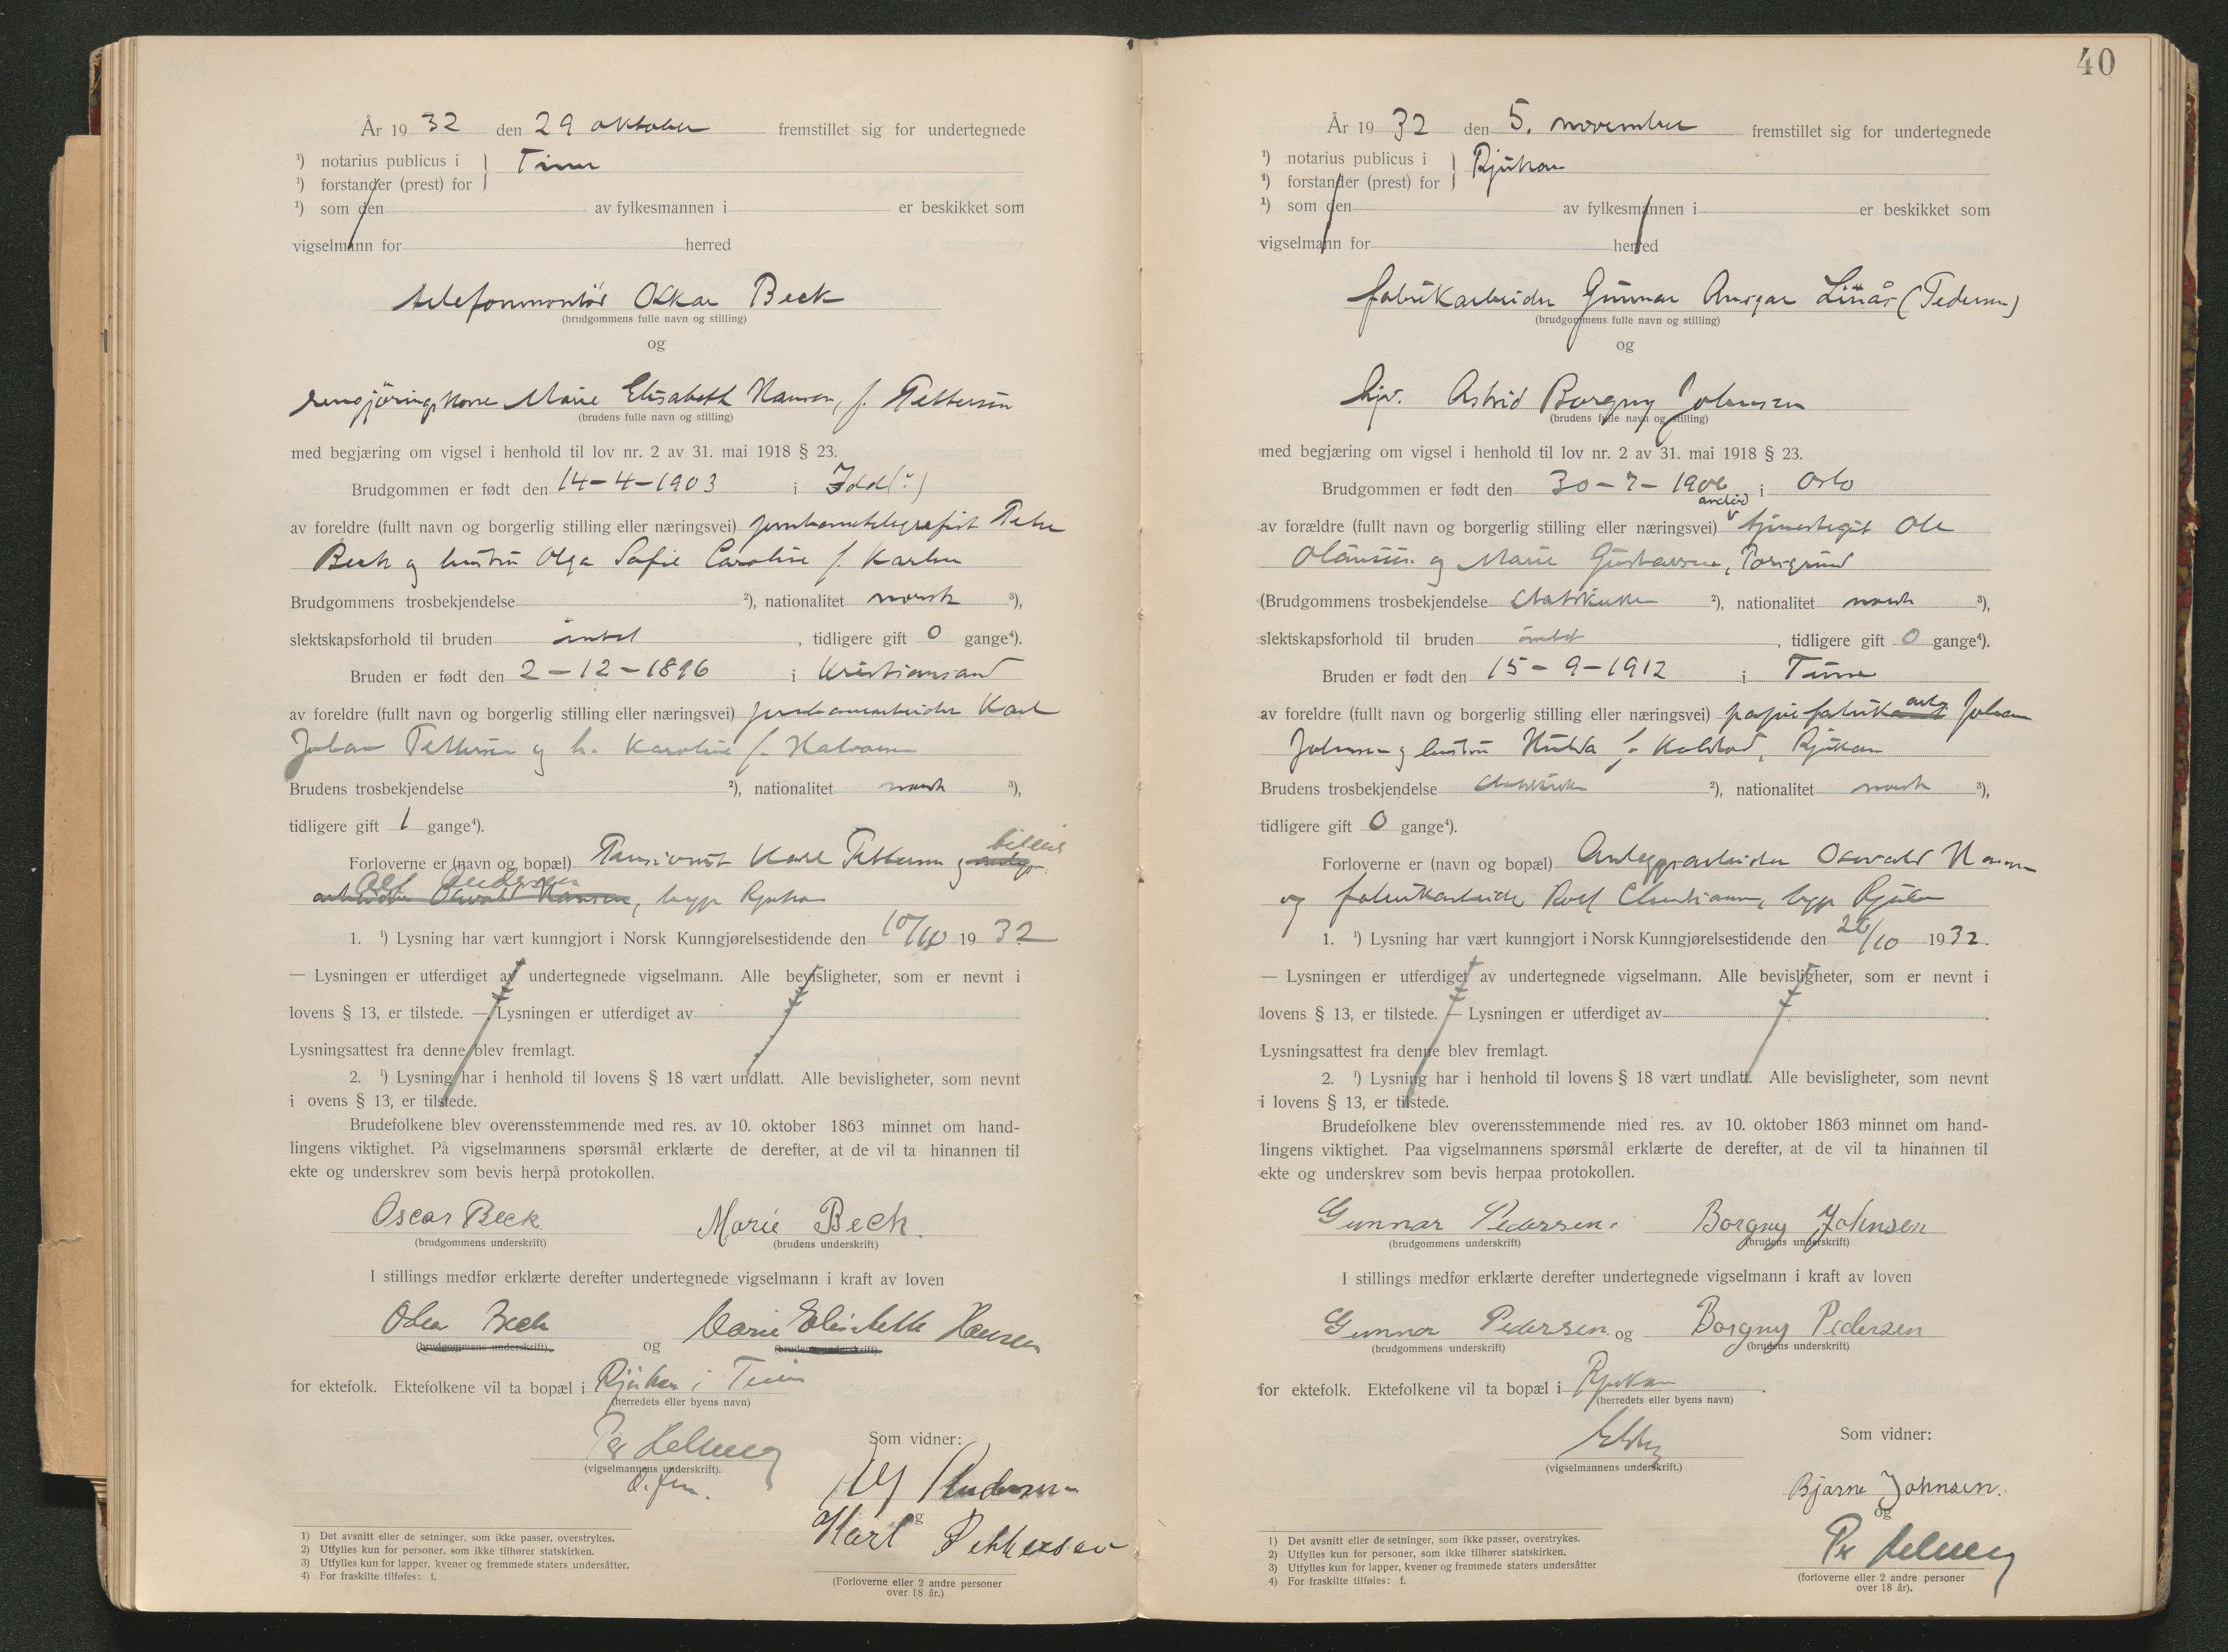 År 1932 den 29 oktober fremstillet sig for undertegnede
¹) notarius publicus i } Tinn
¹) forstander (prest) for
¹) som den av fylkesmannen i er beskikket som
vigselmann for herred
telefonmontör Oskar Beck
(brudgommens fulle navn og stilling)
og
rengjöringskone Marie Elisabeth Hansen, f. Pettersen
(brudens fulle navn og stilling)
med begjæring om vigsel i henhold til lov nr. 2 av 31. mai 1918 § 23.
Brudgommen er født den 14-4-1903 i Idd(?)
av foreldre (fullt navn og borgerlig stilling eller næringsvei) jernbanetelegrafist Peter
Beck og hustru Olga Sofie Caroline f. Karlsen
Brudgommens trosbekjendelse ²), nationalitet norsk ³),
slektskapsforhold til bruden intet, tidligere gift 0 gange⁴).
Bruden er født den 2-12-1896 i Kristiansand
av foreldre (fullt navn og borgerlig stilling eller næringsvei) jernbanearbeider Karl
Johan Pettersen og h. Karoline f. Halvorsen
Brudens trosbekjendelse ²), nationalitet norsk ³),
tidligere gift 1 gange⁴).
Forloverne er (navn og bopæl) Pensionist Karl Pettersen og
Alf Andersen
arbeider Oswald Hansen, begge Rjukan
1. ¹) Lysning har vært kunngjort i Norsk Kunngjørelsestidende den 10/10 1932
— Lysningen er utferdiget av undertegnede vigselmann. Alle bevisligheter, som er nevnt i
lovens § 13, er tilstede. — Lysningen er utferdiget av
Lysningsattest fra denne blev fremlagt.
2. ¹) Lysning har i henhold til lovens § 18 vært undlatt. Alle bevisligheter, som nevnt
i ovens § 13, er tilstede.
Brudefolkene blev overensstemmende med res. av 10. oktober 1863 minnet om hand-
lingens viktighet. På vigselmannens spørsmål erklærte de derefter, at de vil ta hinannen til
ekte og underskrev som bevis herpå protokollen.
Oscar Beck. Marie Beck.
(brudgommens underskrift) (brudens underskrift)
I stillings medfør erklærte derefter undertegnede vigselmann i kraft av loven
Oskar Beck og Marie Elisabeth Hansen
(brudgommens underskrift). (brudens underskrift)
for ektefolk. Ektefolkene vil ta bopæl i Rjukan i Tinn
(herredets eller byens navn)
Som vidner:
(vigselmannens underskrift).
Alf Andersen
og
Karl Pettersen
(Forloverne eller 2 andre personer
over 18 år.)
1) Det avsnitt eller de setninger, som ikke passer, overstrykes.
2) Utfylles kun for personer, som ikke tilhører statskirken.
3) Utfylles kun for lapper, kvener og fremmede staters undersåtter.
4) For fraskilte tilføies: f.
40
År 1932 den 5. november fremstillet sig for undertegnede
¹) notarius publicus i } Rjukan
¹) forstander (prest) for
¹) som den av fylkesmannen i er beskikket som
vigselmann for herred
fabrikarbeider Gunnar Ansgar Linås (Pedersen)
(brudgommens fulle navn og stilling)
og
hjv. Astrid Borgny Johnsen
(brudens fulle navn og stilling)
med begjæring om vigsel i henhold til lov nr. 2 av 31. mai 1918 § 23.
Brudgommen er født den 30-7-1906 i Oslo
av forældre (fullt navn og borgerlig stilling eller næringsvei) Ole
og Marie Gustavsen, Porsgrund
(Brudgommens trosbekjendelse statskirken ²), nationalitet norsk ³),
slektskapsforhold til bruden intet, tidligere gift 0 gange⁴).
Bruden er født den 15-9-1912 i Tinn
av foreldre (fullt navn og borgerlig stilling eller næringsvei) papirfabrikarb. Johan
Johnsen og hustru Hulda f. Kolstad, Rjukan
Brudens trosbekjendelse statskirken ²), nationalitet norsk ³),
tidligere gift 0 gange⁴).
Forloverne er (navn og bopæl) Anleggsarbeider Oswald Hansen
og fabrikarbeider Rolf Christiansen, begge Rjukan
1. ¹) Lysning har vært kunngjort i Norsk Kunngjørelsestidende den 26/10 1932.
— Lysningen er utferdiget av undertegnede vigselmann. Alle bevisligheter, som er nevnt i
lovens § 13, er tilstede. — Lysningen er utferdiget av
Lysningsattest fra denne blev fremlagt.
2. ¹) Lysning har i henhold til lovens § 18 vært undlatt. Alle bevisligheter, som nevnt
i lovens § 13, er tilstede.
Brudefolkene blev overensstemmende med res. av 10. oktober 1863 minnet om hand-
lingens viktighet. Paa vigselmannens spørsmål erklærte de derefter, at de vil ta hinannen til
ekte og underskrev som bevis herpaa protokollen.
Gunnar Pedersen. Borgny Johnsen
(brudgommens underskrift) (brudens underskrift)
I stillings medfør erklærte derefter undertegnede vigselmann i kraft av loven
Gunnar Pedersen. og Borgny Pedersen
(brudgommens underskrift) (brudens underskrift)
for ektefolk. Ektefolkene vil ta bopæl i Rjukan
(herredets eller byens navn)
Som vidner:
(vigselmannens underskrift.)
Bjarne Johnsen.
og
(forloverne eller 2 andre personer
over 18 år).
1) Det avsnitt eller de setninger, som ikke passer, overstrykes.
2) Utfylles kun for personer, som ikke tilhører statskirken.
3) Utfylles kun for lapper, kvener og fremmede staters undersåtter
4) For fraskilte tilføies: f.